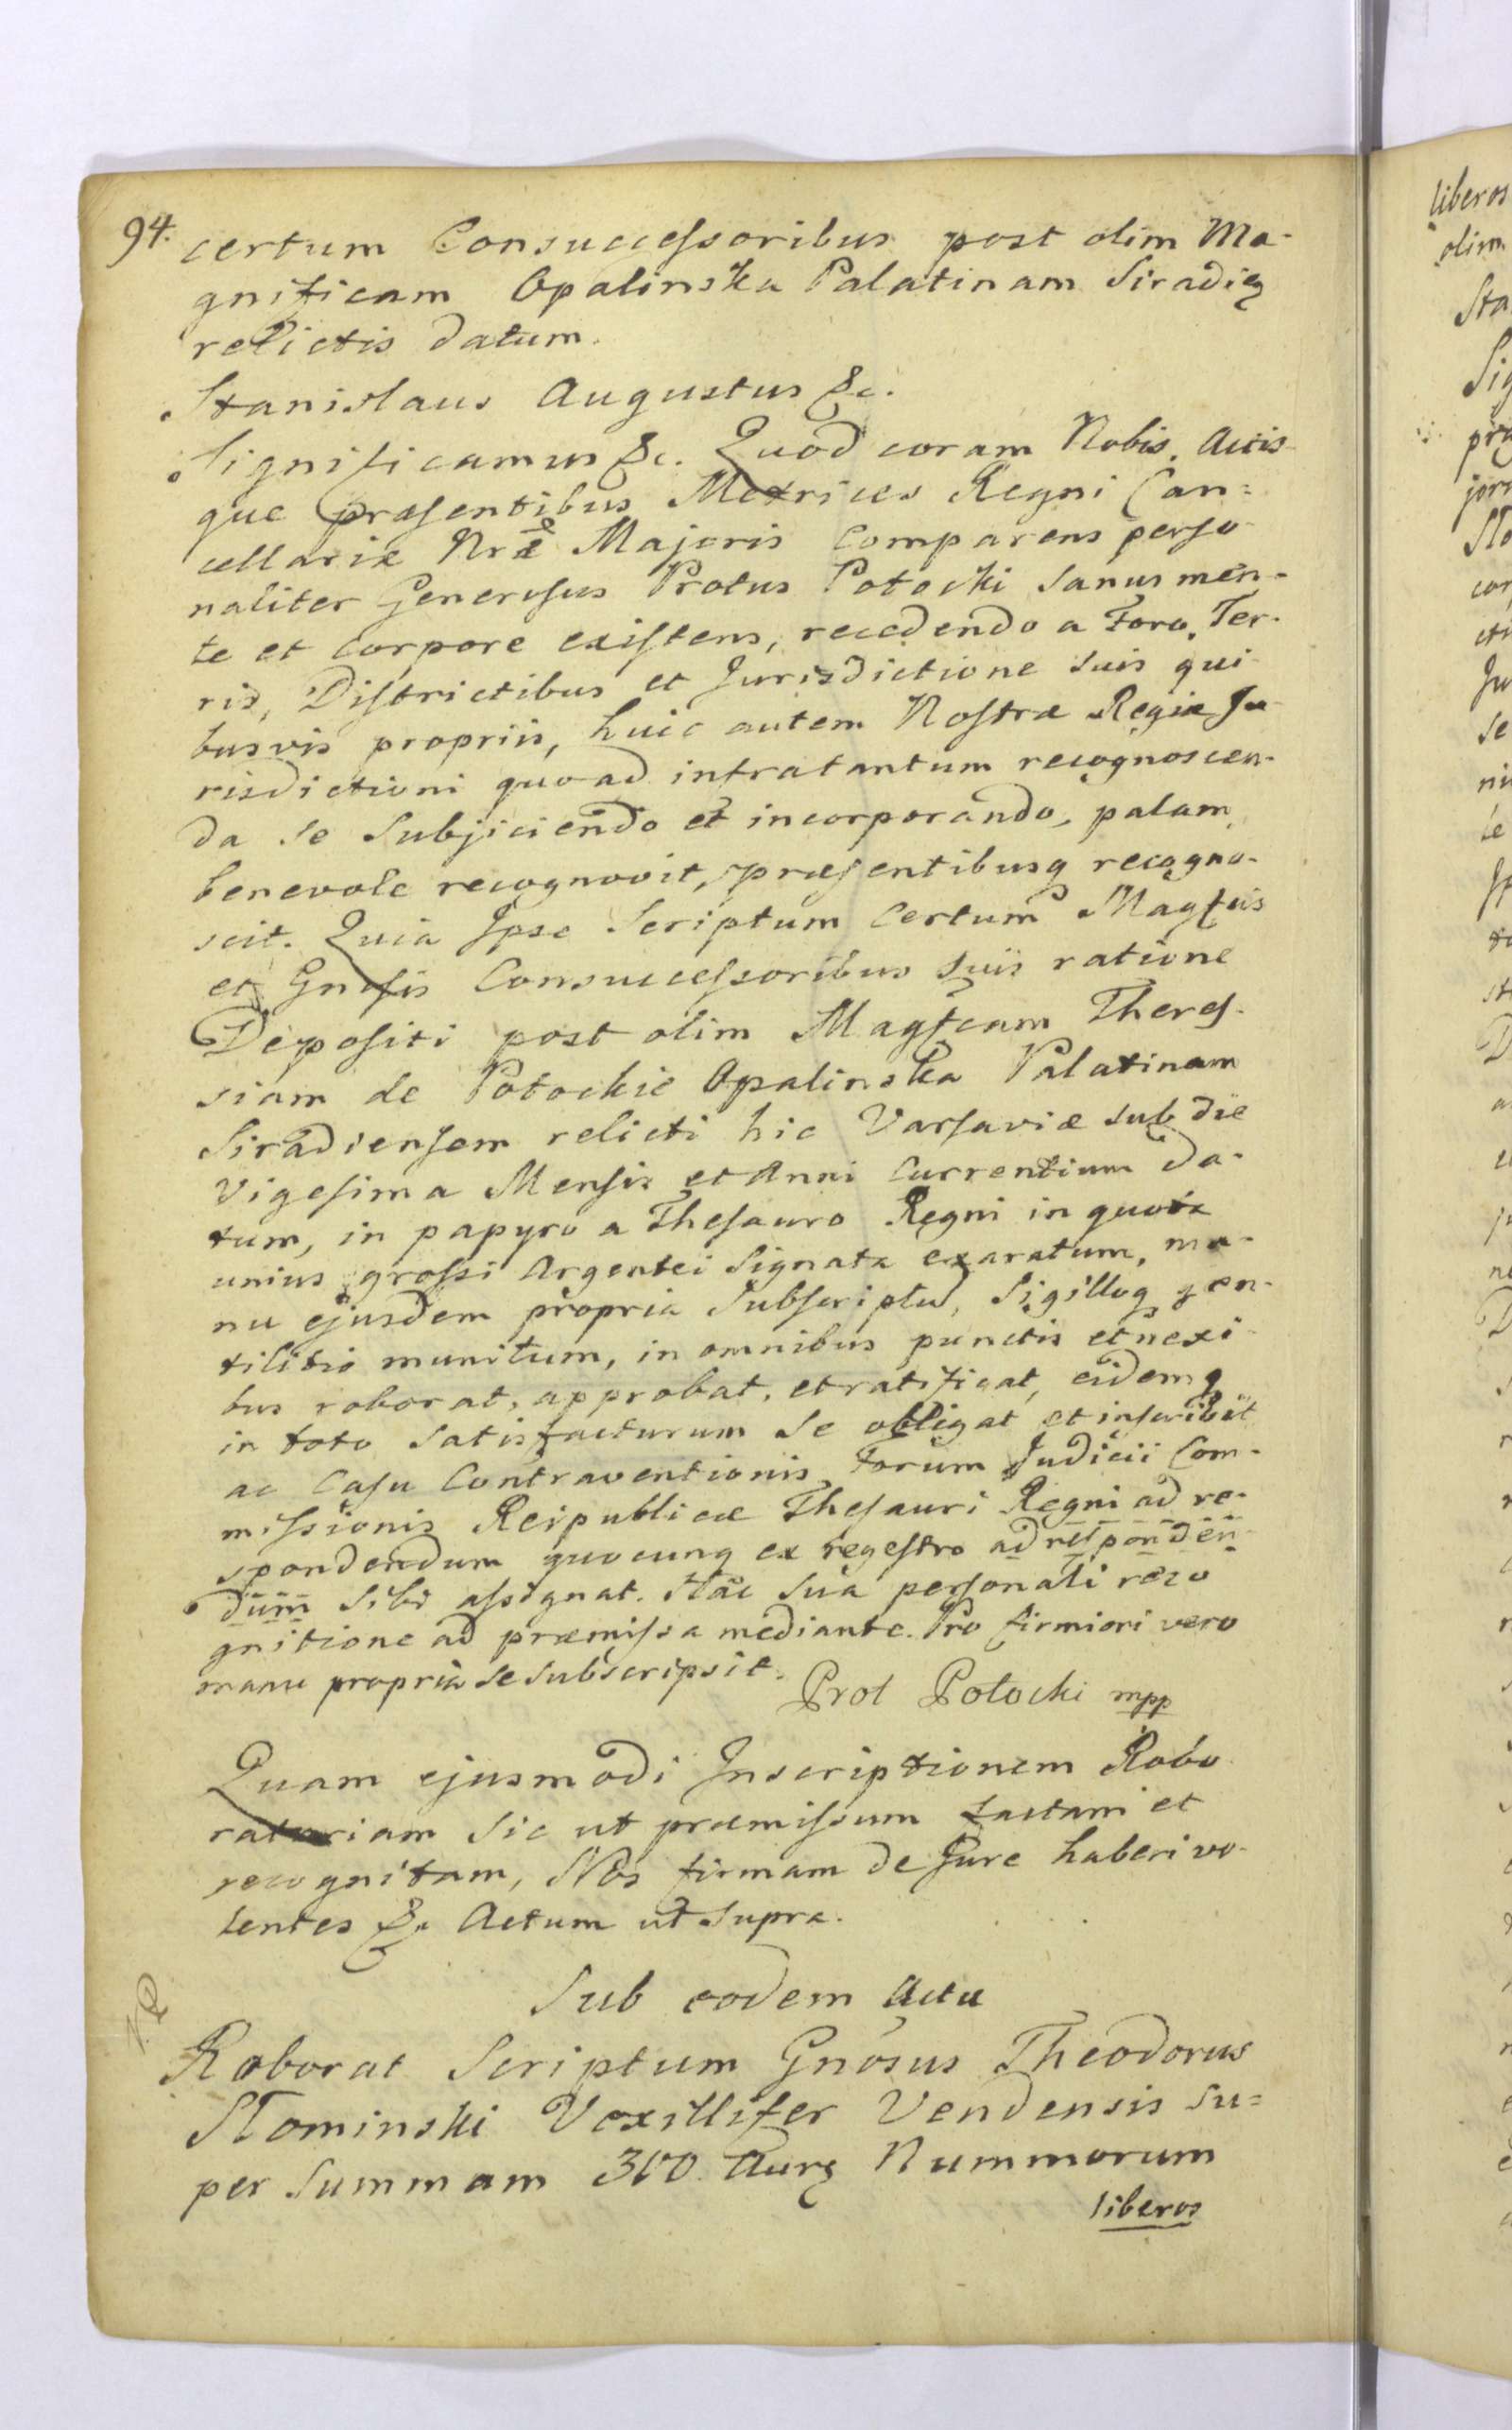 94.
certum Consuccessoribus post olim Ma-
gnificam Opalinska Palatinam Siradię
relictis datum.
Stanislaus Augustus &c.
Significamus &c. Quod coram Nobis, Actis
que præsentibus Metrices Regni Can=
cellariæ Nræ Majoris Comparens perso
naliter Generosus Protus Potocki sanus men-
te et corpore existens, recedendo a Foro, Ter-
ris, Districtibus et Jurisdictione suis qui
busvis propriis, huic autem Nostræ Regiæ Ju
risdictioni quoad infratantum recognoscen-
da se Subjiciendo et incorporando, palam
benevole recognovit, præsentibusq recogno-
scit. Quia Ipse Scriptum Certum Magfcis
et Gnosis Consuccessoribus suis ratione
Depositi post olim Magfcam Theres-
siam de Potockie Opalinska Palatinam
Siradiensem relicti hic Varsaviæ sub die
Vigesima Mensis et Anni Currentium da-
tum, in papyro a Thesauro Regni in quota
unius grossi Argentei Signata exaratum, ma-
nu ejusdem propria Subscriptum, Sigilloq gen-
tilitio munitum, in omnibus punctis et nexi
bus roborat, approbat, et ratificat, eidemq
in toto Satisfacturum Se obligat et inscribit
ac Casu Contraventionis Forum Judicii Com-
missionis Reipublicæ Thesauri Regni ad re-
spondendum quocunq ex regestro ad responden-
dum Sibi assignat. Hac Sua personali reco
gnitione ad præmissa mediante. Pro firmiori vero
manu propria se subscripsit.
Prot Potocki mpp
Quam ejusmodi Inscriptionem Robo
ratoriam Sic ut præmissum factam et
recognitam, Nos firmam de Jure haberi vo-
lentes &c Actum ut Supra.
Sub eodem Actu
Roborat Scriptum Gnosus Theodorus
Słominski Vexillifer Vendensis su=
per Summam 300. Aurę Nummorum
liberos
liberos
olim
Sta